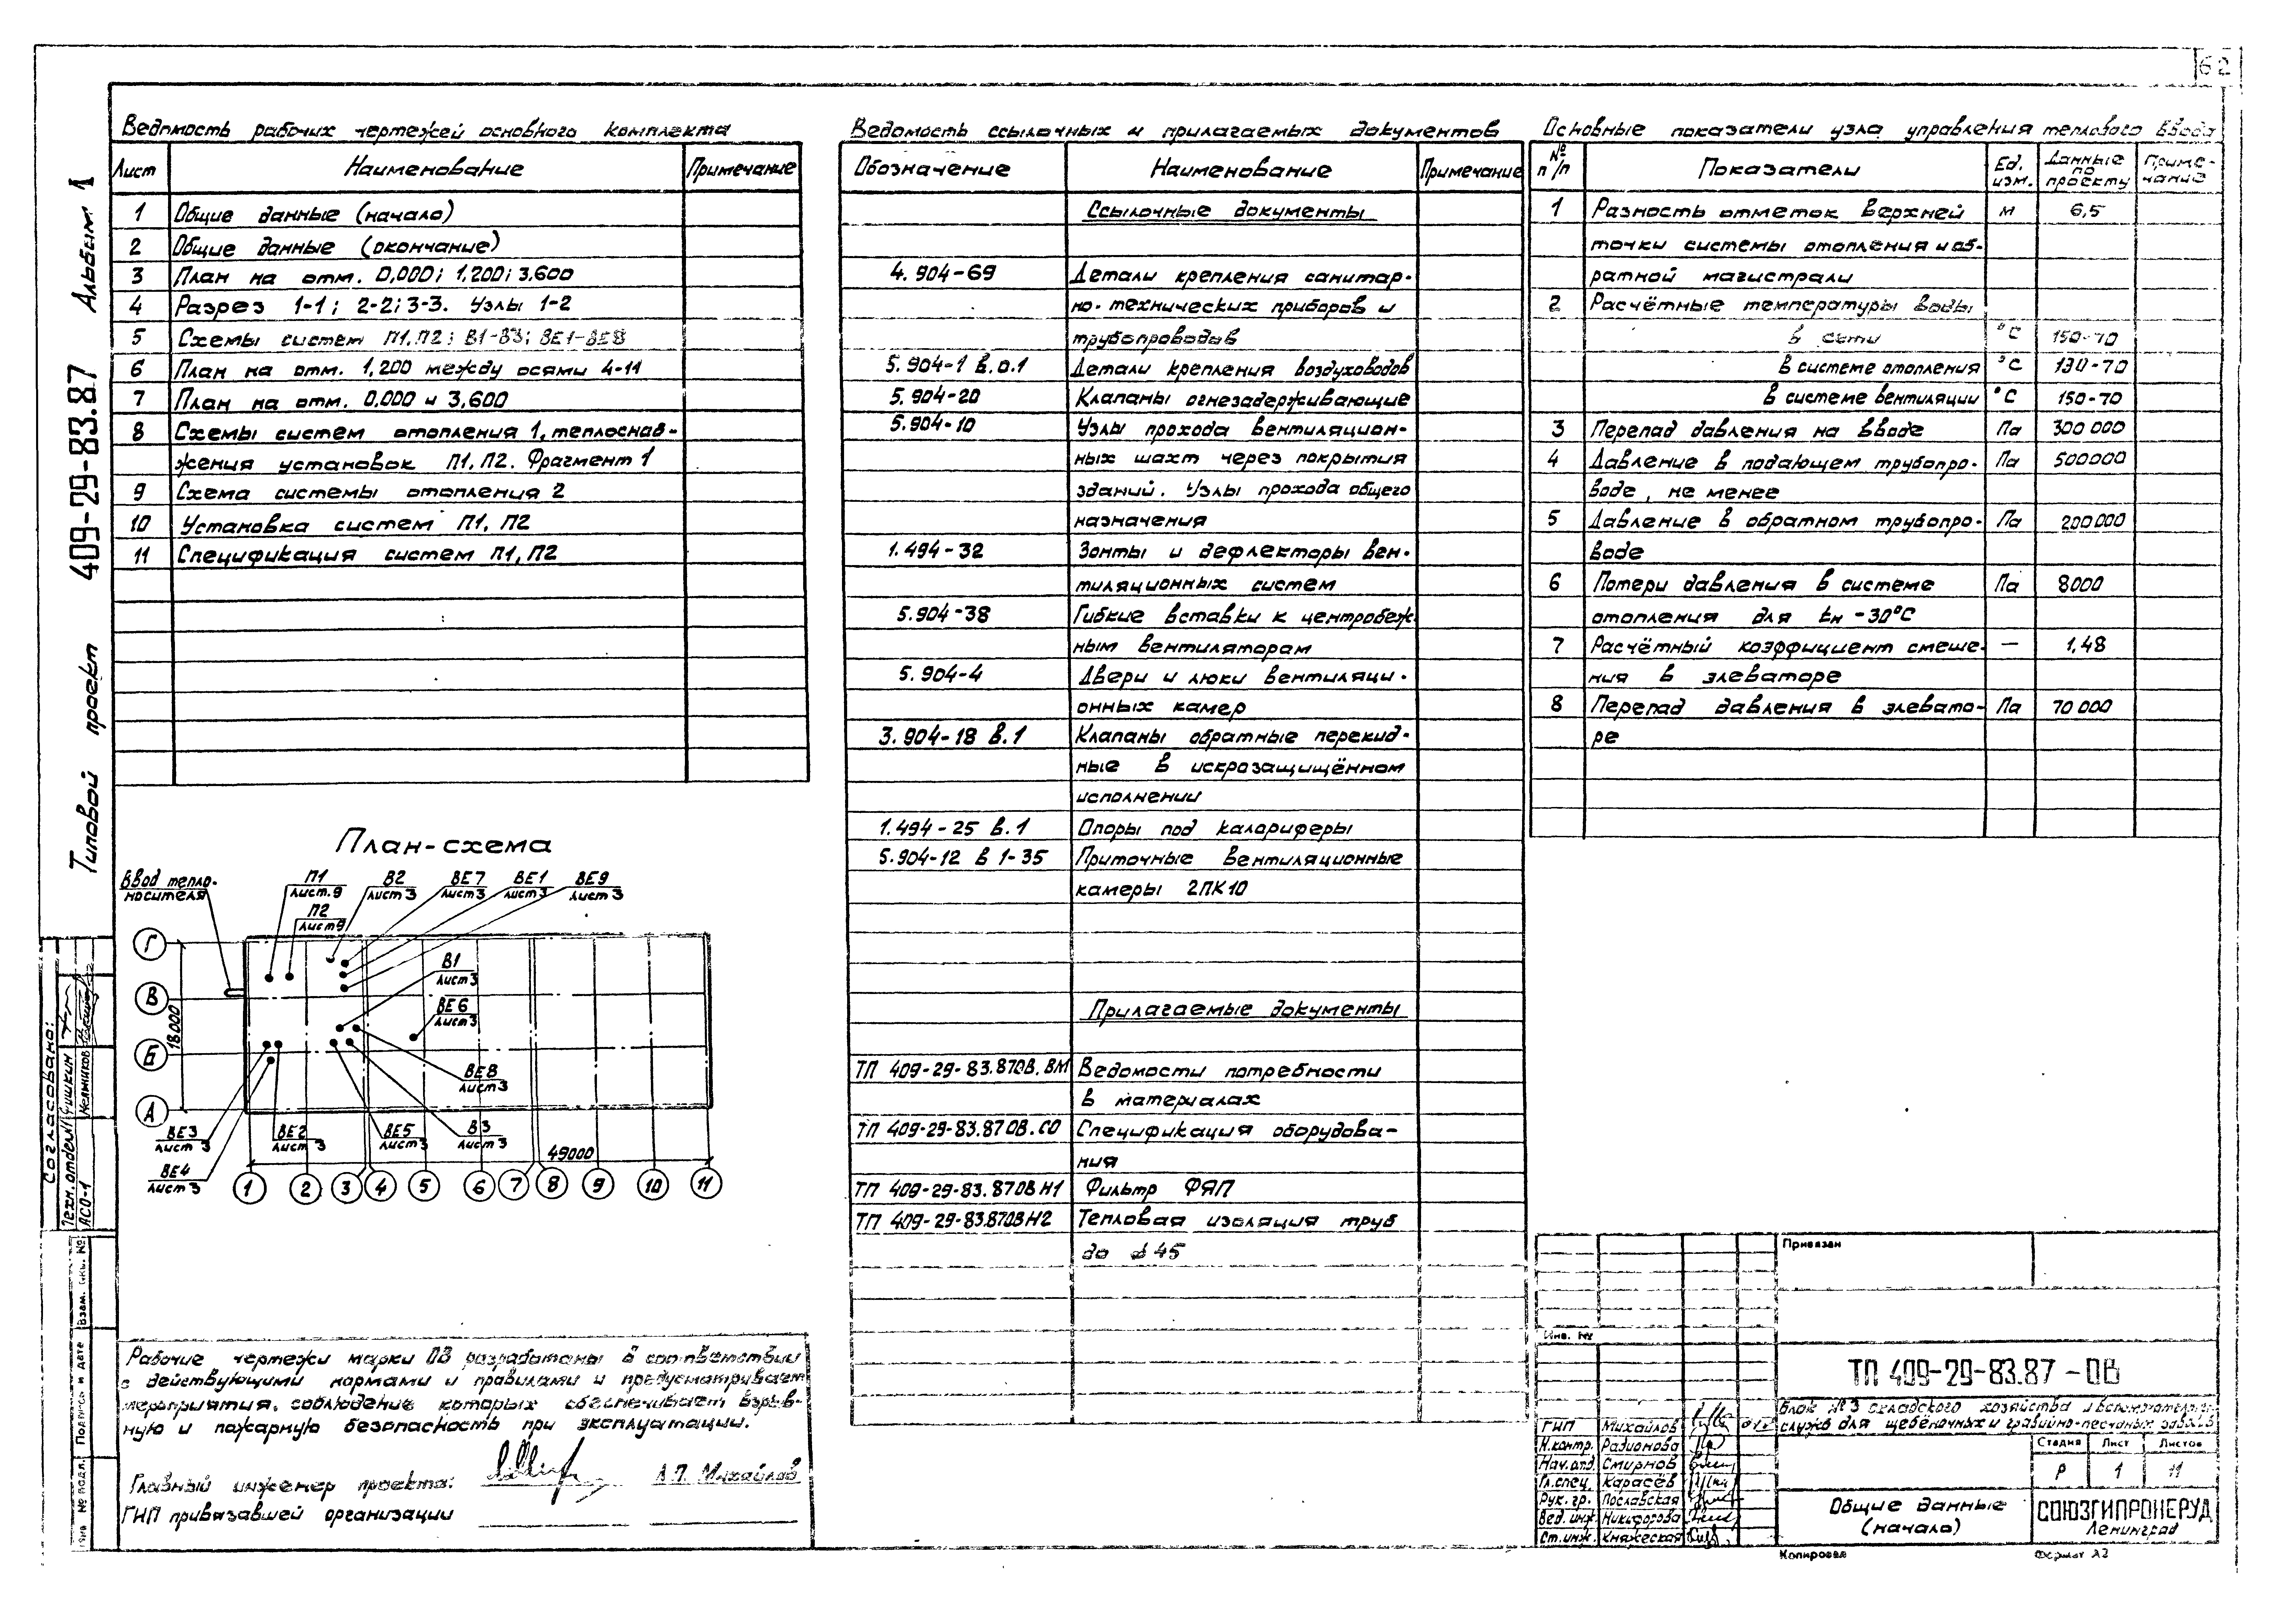 62
Типовой проект 409-29-83.87 Альбом 1
Ведомость рабочих чертежей основного комплекта
Лист Наименование Примечание
1 Общие данные (начало)
2 Общие данные (окончание)
3 План на отм. 0,000; 1,200; 3.600
4 Разрез 1-1; 2-2; 3-3. Узлы 1-2
5 Схемы систем П1, П2; В1-В3; ВЕ1-ВЕ8
6 План на отм. 1,200 между осями 4-11
7 План на отм. 0.000 и 3,600
8 Схемы систем отопления 1, теплоснаб-
жения установок П1, П2. Фрагмент 1
9 Схема системы отопления 2
10 Установка систем П1, П2
11 Спецификация систем П1, П2
План-схема
Ввод тепло-
носителя
П1
Лист.9
П2
Лист9
В2
Лист3
ВЕ7
Лист3
ВЕ1
Лист3
ВЕ9
Лист3
В1
Лист3
ВЕ6
Лист3
ВЕ8
Лист3
ВЕ3
Лист3
ВЕ2
Лист3
ВЕ5
Лист3
В3
Лист3
ВЕ4
Лист3
Г
В
Б
А
18000
49000
1 2 3 4 5 6 7 8 9 10 11
Рабочие чертежи марки ОВ разработаны в соответствии
с действующими нормами и правилами и предусматривает
мероприятия, соблюдение которых обеспечивает взрыв-
ную и пожарную безопасность при эксплуатации.
Главный инженер проекта: Л.П. Михайлов
ГИП привязавшей организации
Ведомость ссылочных и прилагаемых документов
Обозначение Наименование Примечание
Ссылочные документы
4.904-69 Детали крепления санитар-
но-технических приборов и
трубопроводов
5.904-1 в.0.1 Детали крепления воздуховодов
5.904-20 Клапаны огнезадерживающие
5.904-10 Узлы прохода вентиляцион-
ных шахт через покрытия
зданий. Узлы прохода общего
назначения
1.494-32 Зонты и дефлекторы вен-
тиляционных систем
5.904-38 Гибкие вставки к центробеж
ным вентиляторам
5.904-4 Двери и люки вентиляци-
онных камер
3.904-18 в.1 Клапаны обратные перекид-
ные в искрозащищённом
исполнении
1.494-25 в.1 Опоры под калориферы
5.904-12 в 1-35 Приточные вентиляционные
камеры 2ПК10
Прилагаемые документы
ТП 409-29-83.87ОВ.ВМ Ведомости потребности
в материалах
ТП 409-29-83.87ОВ.СО Спецификация оборудова-
ния
ТП 409-29-83.87ОВН1 Фильтр ФЯП
ТП 409-29-83.87ОВН2 Тепловая изоляция труб
до ⌀45
Основные показатели узла управления теплового ввода
№ п/п Показатели Ед. изм. Данные по проекту Приме-чание
1 Разность отметок верхней м 6,5
точки системы отопления и об-
ратной магистрали
2 Расчётные температуры воды
в сети °С 150-70
в системе отопления °С 130-70
в системе вентиляции °С 150-70
3 Перепад давления на вводе Па 300 000
4 Давление в подающем трубопро- Па 500000
воде, не менее
5 Давление в обратном трубопро- Па 200000
воде
6 Потери давления в системе Па 8000
отопления для tн -30°С
7 Расчётный коэффициент смеше- — 1,48
ния в элеваторе
8 Перепад давления в элевато- Па 70 000
ре
Согласовано:
Техн.отдел Чишкин
АСО-1 Мельников
Взам. инв. №
Подпись и дата
Инв № подл.
Привязан
Инв. №
ТП 409-29-83.87-ОВ
Блок №3 складского хозяйства и вспомогательн.
служб для щебёночных и гравийно-песчаных заводов
ГИП Михайлов
Н.контр. Радионова
Нач.отд. Смирнов
Гл.спец. Карасёв
Рук. гр. Пославская
Вед. инж Никифорова
Ст.инж. Княжеская
Стадия Лист Листов
Р 1 11
Общие данные
(начало)
СОЮЗГИПРОНЕРУД
Ленинград
Копировал Формат А2